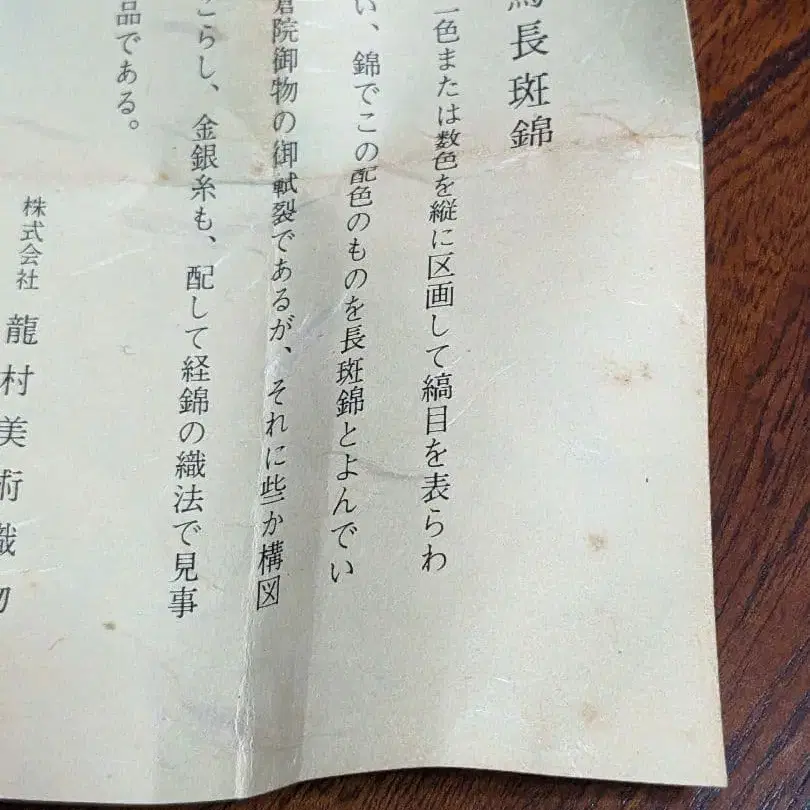 長斑錦
色または数色を縦に区画して縞目を表らわ
い、錦でこの配色のものを長斑錦とよんでい
倉院御物の御軾裂であるが、それに些か構図
こらし、金銀糸も、配して経錦の織法で見事
品である。
株式会社 龍村美術織